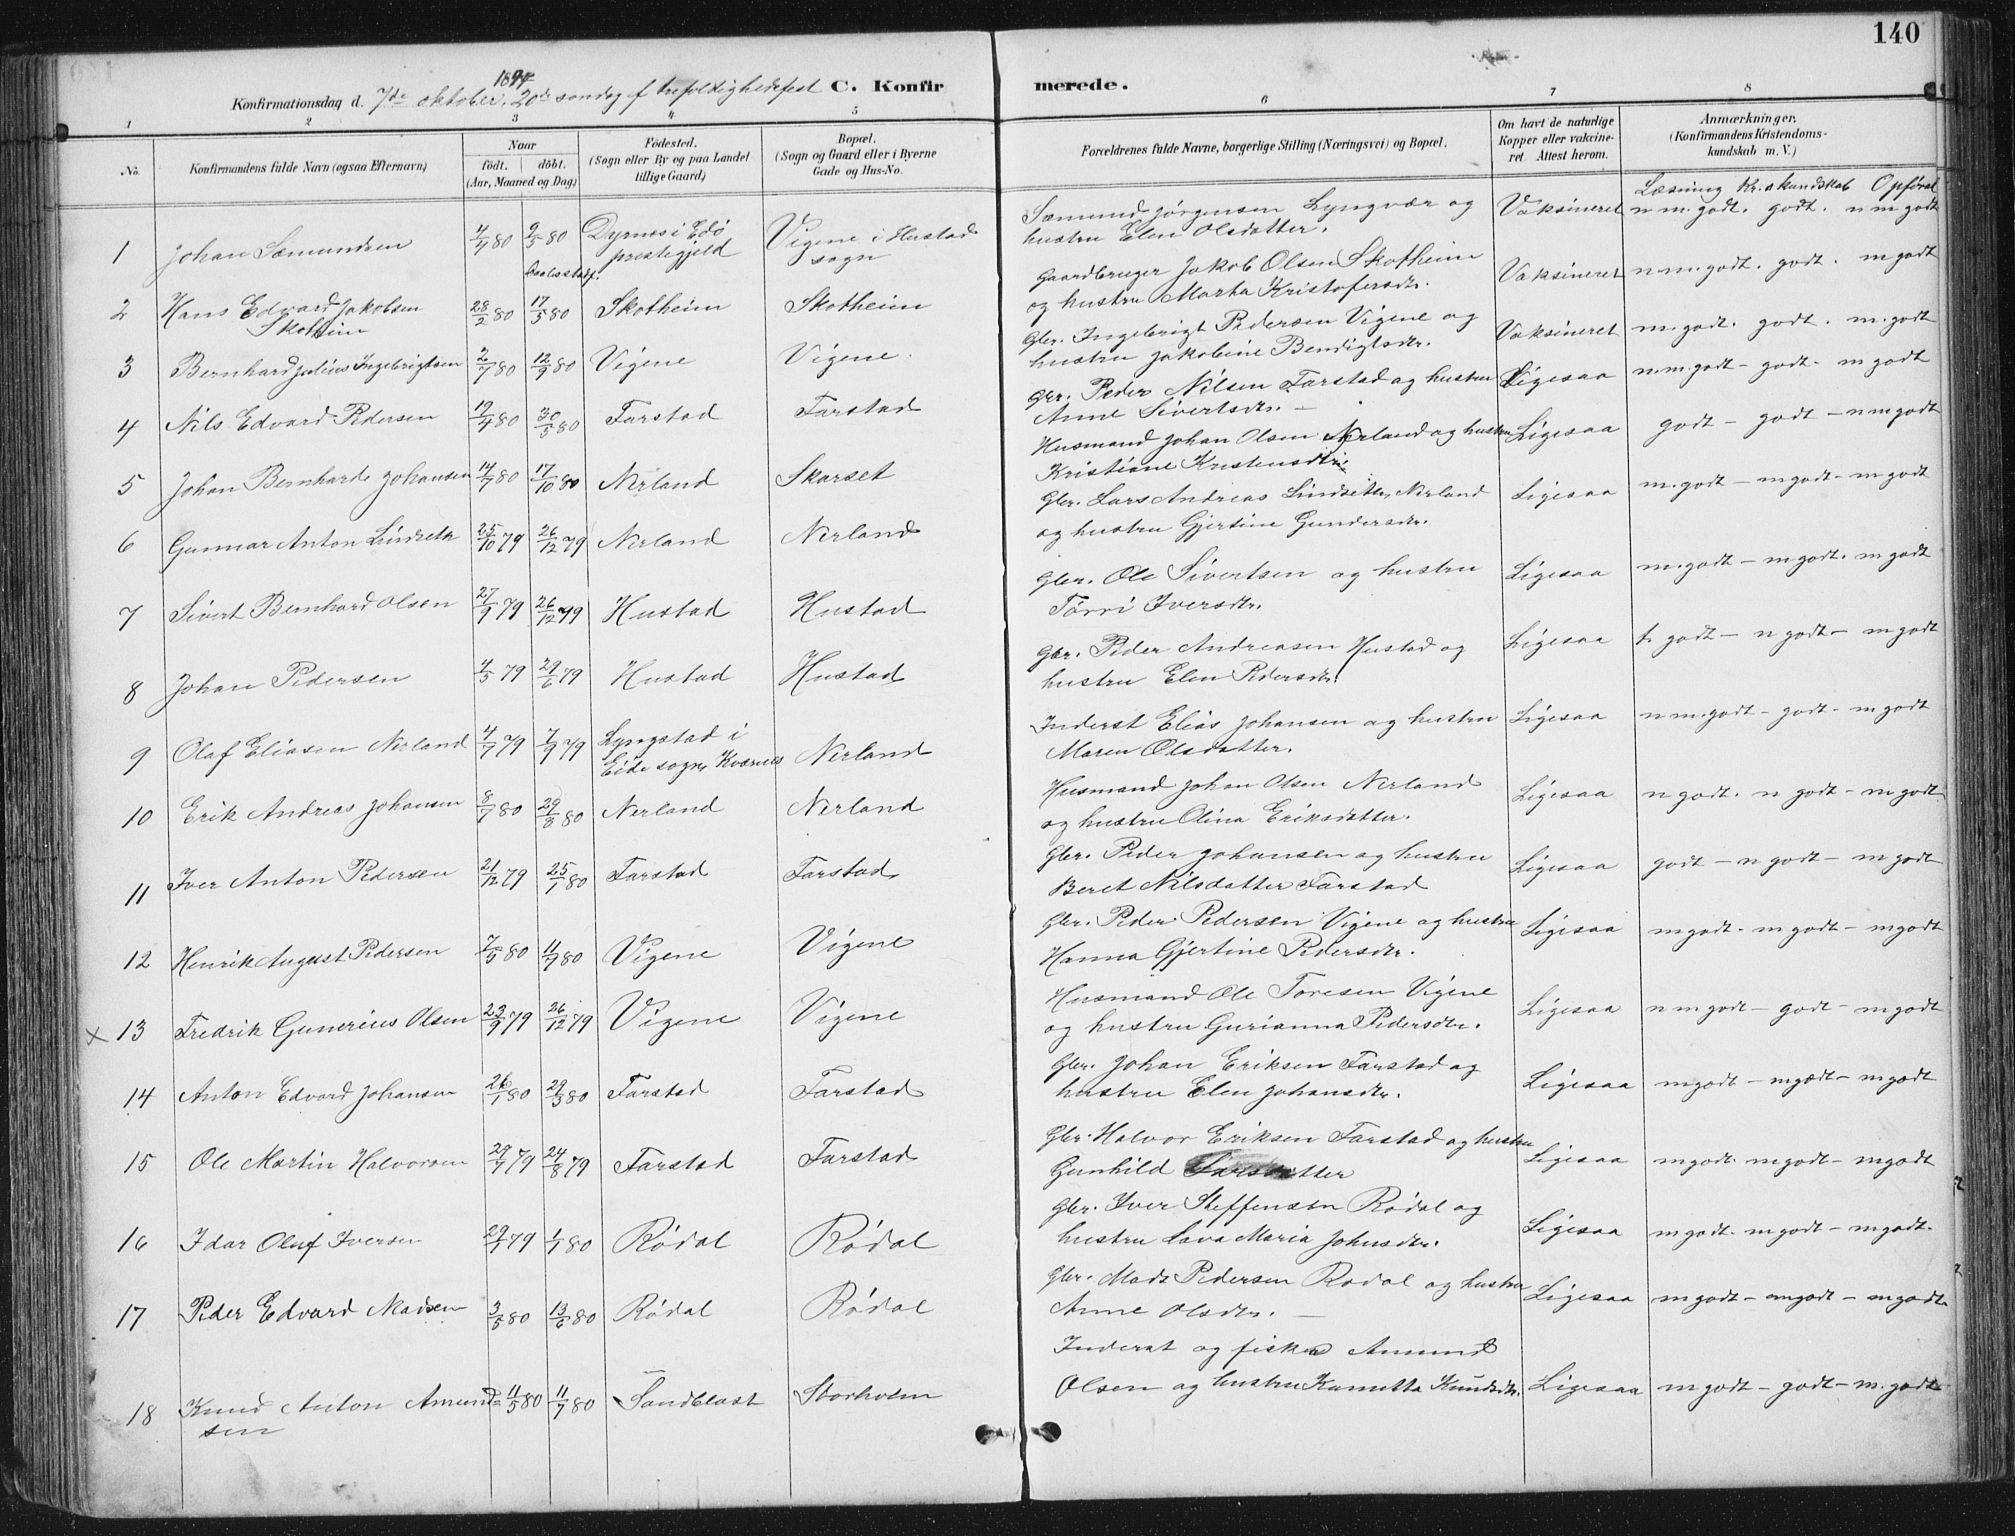 140
1894
Konfirmationsdag d. 7de oktober, 20de søndag f trefoldighedsfest C. Konfirmerede.
1 2 3 4 5 6 7 8
No. Konfirmandens fulde Navn (ogsaa Efternavn) Naar født. døbt. (Aar, Maaned og Dag) Fødested. (Sogn eller By og paa Landet tillige Gaard) Bopæl. (Sogn og Gaard eller i Byerne Gade og Hus-No. Forældrenes fulde Navne, borgerlige Stilling (Næringsvei) og Bopæl. Om havt de naturlige Kopper eller vakcineret. Attest herom. Anmærkninger. (Konfirmandens Kristendomskundskab m. V.)
Læsning Kr.skundskab Opførsel
1 Johan Sæmundsen 4/4 80 2/5 80 Dyrnes i Edø prestegjeld Vigene i Hustad sogn Sæmund Jørgensen Lyngvær og hustru Elen Olsdatter. Vaksineret n m.godt. godt. n m godt
2 Hans Edvard Jakobsen Skotheim 28/2 80 17/5 80 Skotheim Skotheim Gaardbruger Jakob Olsen Skotheim og hustru Marta Kristofersdtr. Vaksineret n.m.godt. godt. m godt
3 Bernhard Julius Ingebrigtsen 2/7 80 12/9 80 Vigene Vigene Gbr. Ingebrigt Pedersen Vigene og hustru Jakobine Bendigtsdtr. Vaksineret m.godt. godt. m.godt
4 Nils Edvard Pedersen 19/4 80 30/5 80 Farstad Farstad Gbr. Peder Nilsen Farstad og hustru Anne Sivertsdtr. Ligesaa n.m.godt - godt - m godt
5 Johan Bernhard Johansen 14/7 80 17/10 80 Nerland Skarset Husmand Johan Olsen Nerland og hustru Kristiane Kristensdtr. Ligesaa godt - godt - n m godt
6 Gunnar Anton Lindseth 25/10 79 26/12 79 Nerland Nerland Gbr. Lars Andreas Lindseth, Nerland og hustru Gjertine Gundersdtr. Ligesaa m.godt - mgodt - m godt
7 Sivert Bernhard Olsen 27/9 79 26/12 79 Hustad Hustad Gbr. Ole Sivertsen og hustru Tørri Iversdtr. Ligesaa m.godt - m godt. m godt
8 Johan Pedersen 4/5 79 29/6 79 Hustad Hustad Gbr. Peder Andreasen Hustad og hustru Elen Pedersdtr. Ligesaa t. godt - n godt - m godt
9 Olaf Eliasen Nerland 4/7 79 7/9 79 Lyngstad i Eide sogn, Kværnes Nerland Inderst Elias Johansen og hustru Maren Olsdatter. Ligesaa n m.godt - godt - m godt
10 Erik Andreas Johansen 8/7 80 29/8 80 Nerland Nerland Husmand Johan Olsen Nerland og hustru Olina Eriksdatter. Ligesaa n godt. n godt - m godt
11 Iver Anton Pedersen 21/12 79 25/1 80 Farstad Farstad Gbr. Peder Johansen og hustru Beret Nilsdatter Farstad Ligesaa godt - n godt - m godt
12 Henrik August Pedersen 7/5 80 11/7 80 Vigene Vigene Gbr. Peder Pedersen Vigene og hustru Hanna Gjertine Pedersdtr. Ligesaa mgodt. m godt - mgodt
x 13 Fredrik Gunerius Olsen 23/9 79 26/12 79 Vigene Vigene Husmand Ole Toresen Vigene og hustru Gurianna Pedersdtr. Ligesaa n m godt - godt - m godt
14 Anton Edvard Johansen 26/1 80 29/3 80 Farstad Farstad Gbr. Johan Eriksen Farstad og hustru Elen Johansdtr. Ligesaa mgodt - mgodt - mgodt
15 Ole Martin Halvorsen 29/7 79 24/8 79 Farstad Farstad Gbr. Halvor Eriksen Farstad og hustru Gunhild Larsdatter Ligesaa mgodt. mgodt - mgodt
16 Idar Oluf Iversen 29/7 79 1/7 80 Rødal Rødal Gbr. Iver Steffensen Rødal og hustru Lava Maria Johnsdtr. Ligesaa mgodt. mgodt - mgodt.
17 Peder Edvard Madsen 3/5 80 13/6 80 Rødal Rødal Gbr. Mads Pedersen Rødal og hustru Anne Olsdtr. Ligesaa mgodt - mgodt - mgodt.
18 Knud Anton Amundsen 11/5 80 11/7 80 Sandblast Storholm Inderst og fisker Amund Olsen og hustru Kanutta Knudsdtr. Ligesaa m godt - godt - m.godt